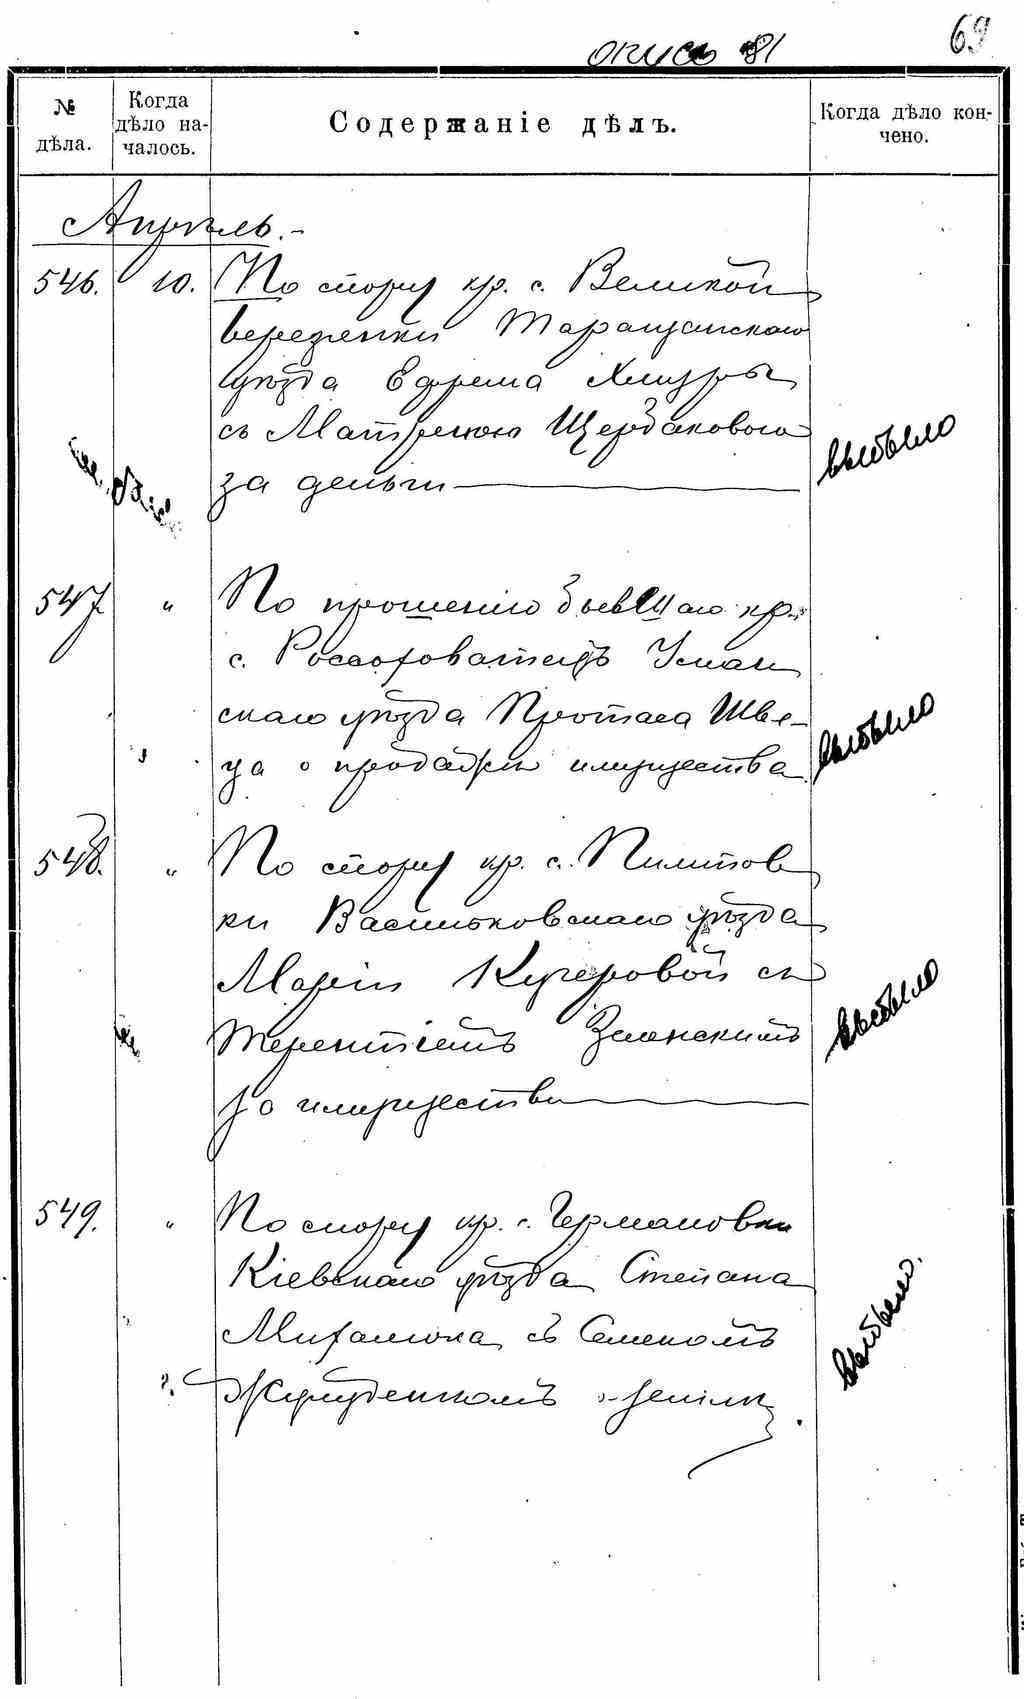 69
опись 81
№ дѣла.
Когда дѣло началось.
Содержаніе дѣлъ.
Когда дѣло кончено.
Апрѣль.-
546. 10. По спору кр. с. Великой
березянки Таращанскаго
уѣзда Ефрема Хмуры
съ Матреною Щербаковою
за деньги
выбыло
547. " По прошенію бывшаго кр.
с. Россоховатецъ Уман
скаго уѣзда Протаса Шве-
ца о продажи имущества
выбыло
548. " По спору кр. с. Пилипов
ки Васильковскаго уѣзда
Маріи Кучеровой съ
Терентіемъ
за имущество
выбыло
549. " По спору кр. с. Германовки
Кіевскаго уѣзда Степана
съ Семеномъ
о землѣ
выбыло.